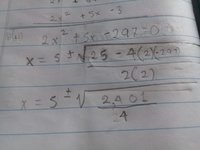 2x² + 5x - 3
2x² + 5x - 297 = 0
x = 5 ± √25 - 4(2)(-297)
2(2)
x = 5 ± √2401
24